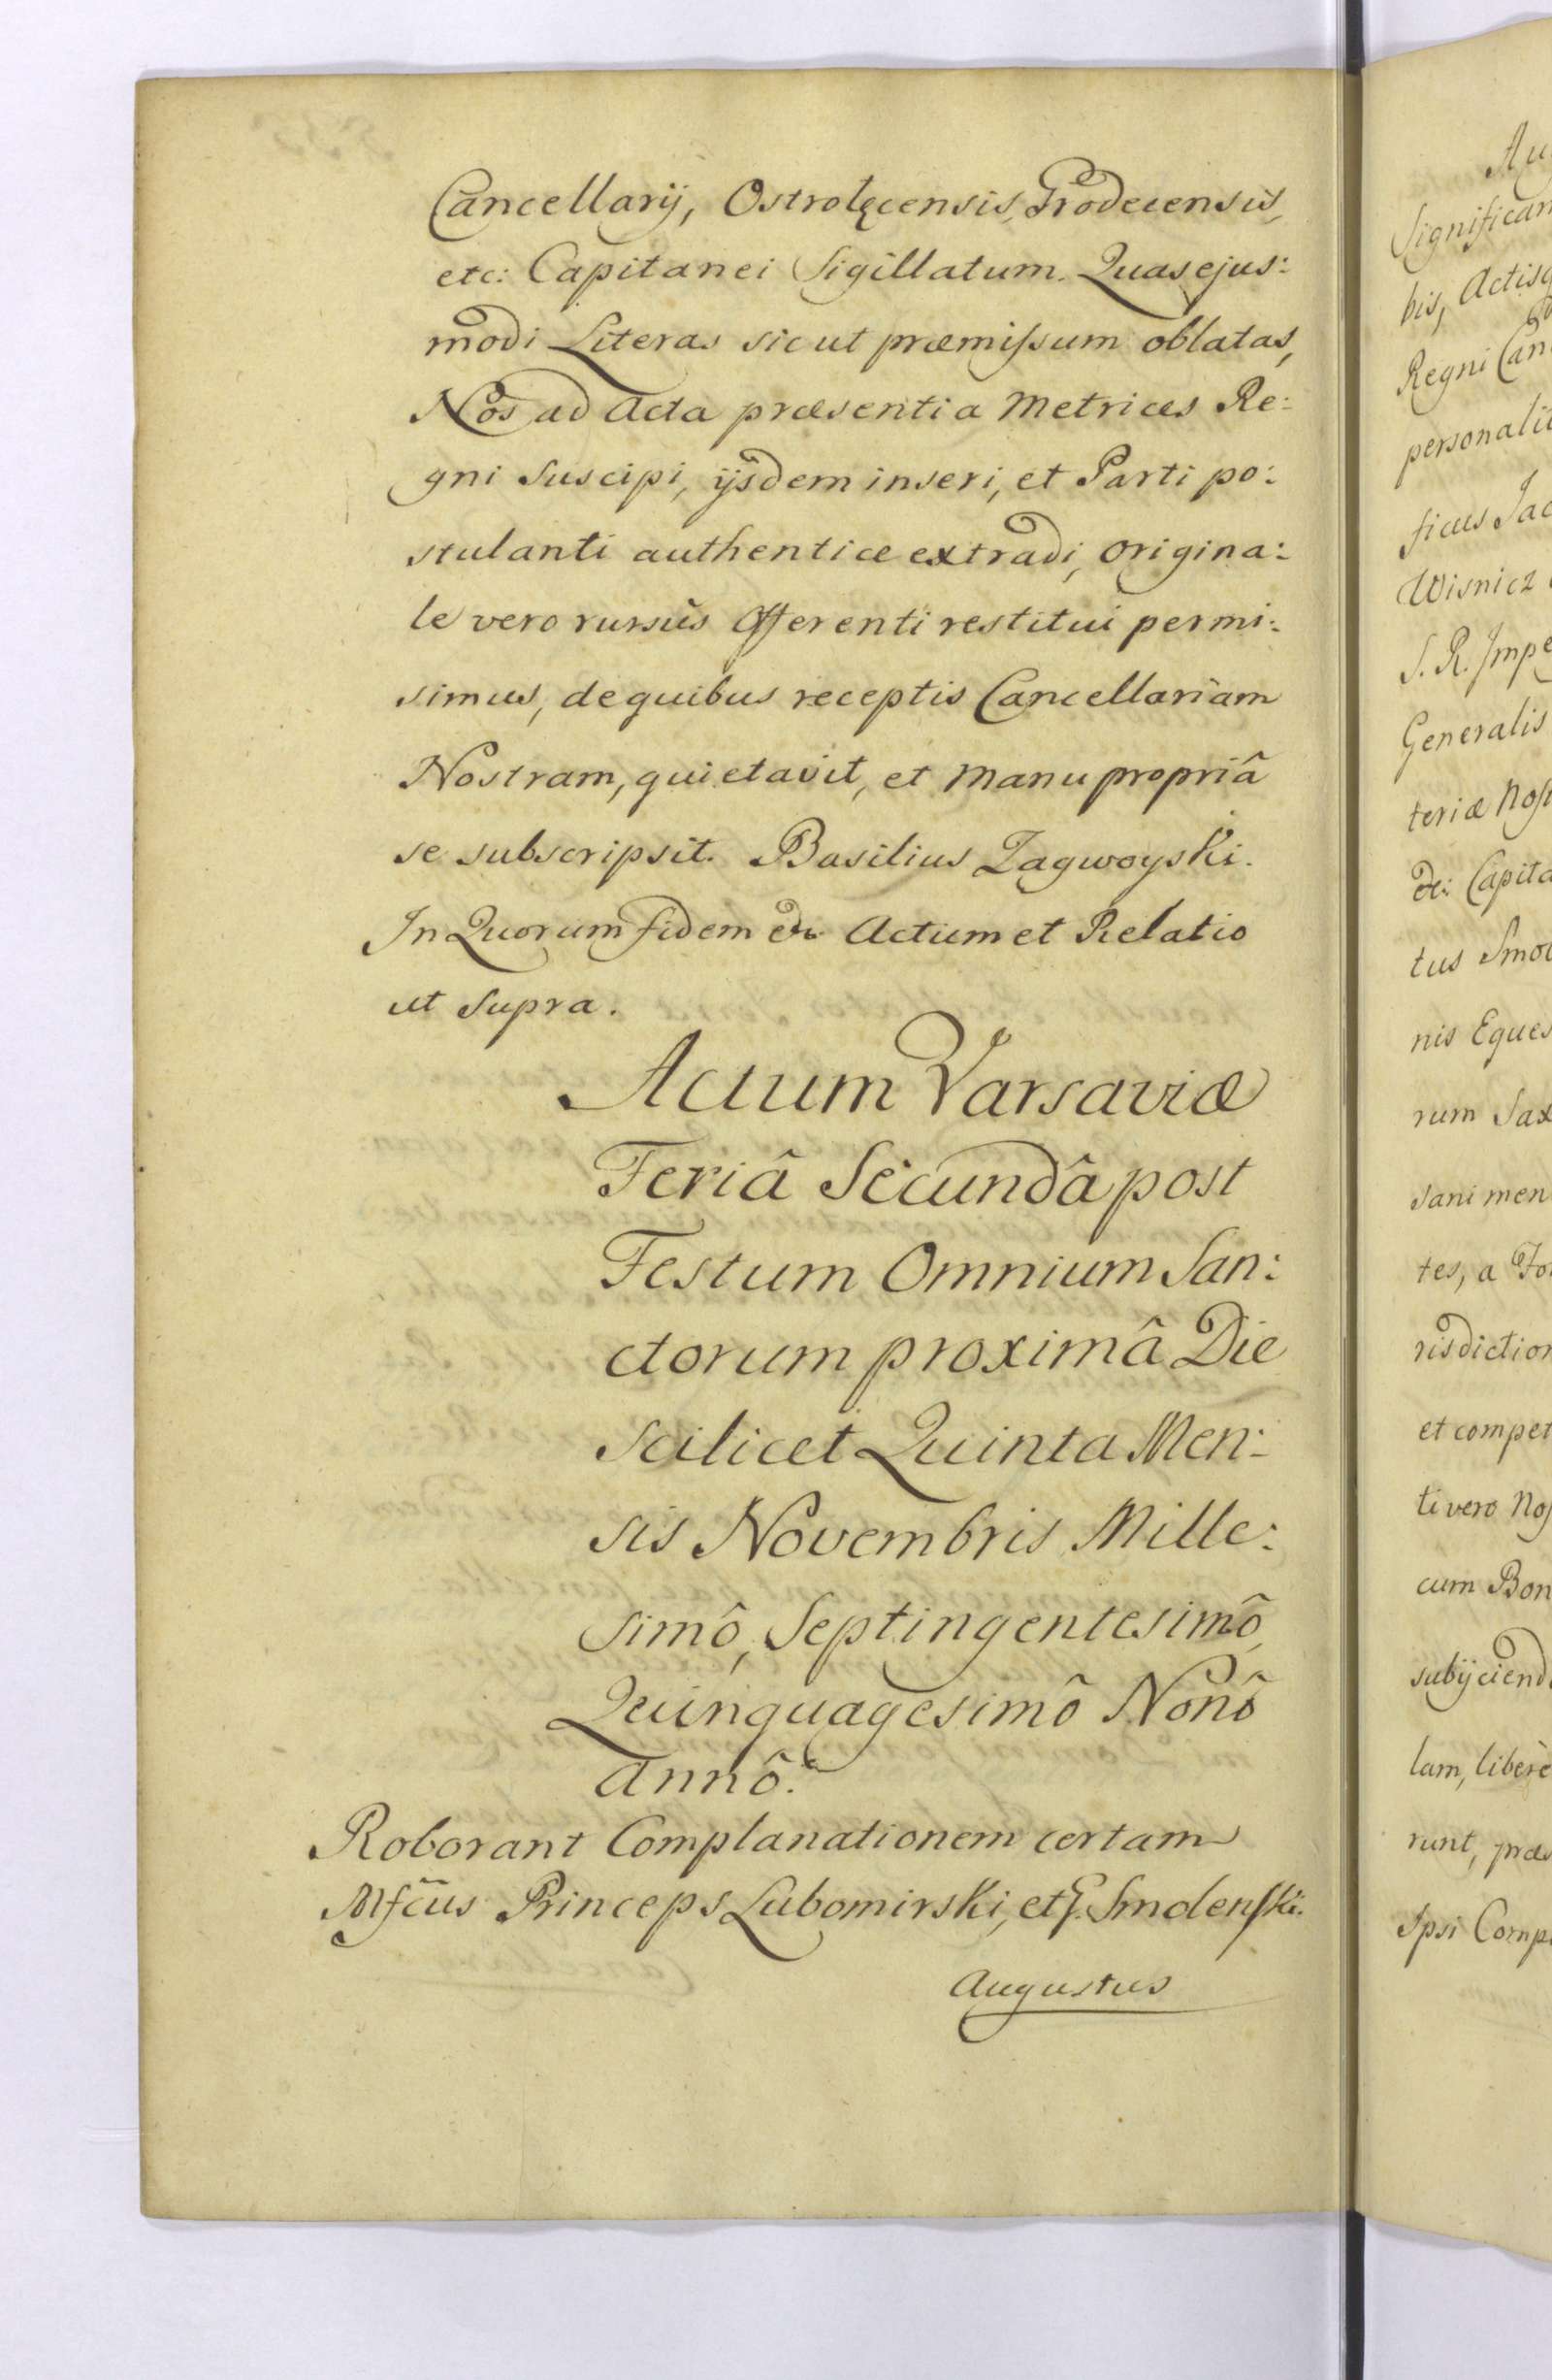 Cancellarij, Ostrołęcensis, Grodecensis,
etc: Capitanei Sigillatum. Quas ejus:
modi Literas sicut præmissum oblatas,
Nos ad Acta præsentia Metrices Re:
gni suscipi, ijsdem inseri, et Parti po:
stulanti authentice extradi, origina:
le vero rursùs Offerenti restitui permi:
simus, de quibus receptis Cancellariam
Nostram, quietavit, et manu propriâ
se subscripsit. Basilius Zagwoyski.
In Quorum fidem etc Actum et Relatio
ut Supra.
Actum Varsaviæ
Feriâ Secundâ post
Festum Omnium San:
ctorum proximâ Die
scilicet Quinta Men:
sis Novembris Mille:
simô, Septingentesimô,
Quinquagesimô Nonô
Annô.
Roborant Complanationem certam
Mfcus Princeps Lubomirski, et G. Smolenski.
Augustus
Au
Significam
bis, Actisq
Regni Can
personalit
ficus Jac
Wisnicz
S. R. Impe
Generalis
teriæ Nost
etc: Capita
tus Smol
nis Eques
rum Sax
sani men
tes, a Fo
risdiction
et compet
ti vero Nos
cum Bon
subijciend
lam, liberè
runt, præs
Ipsi Comp